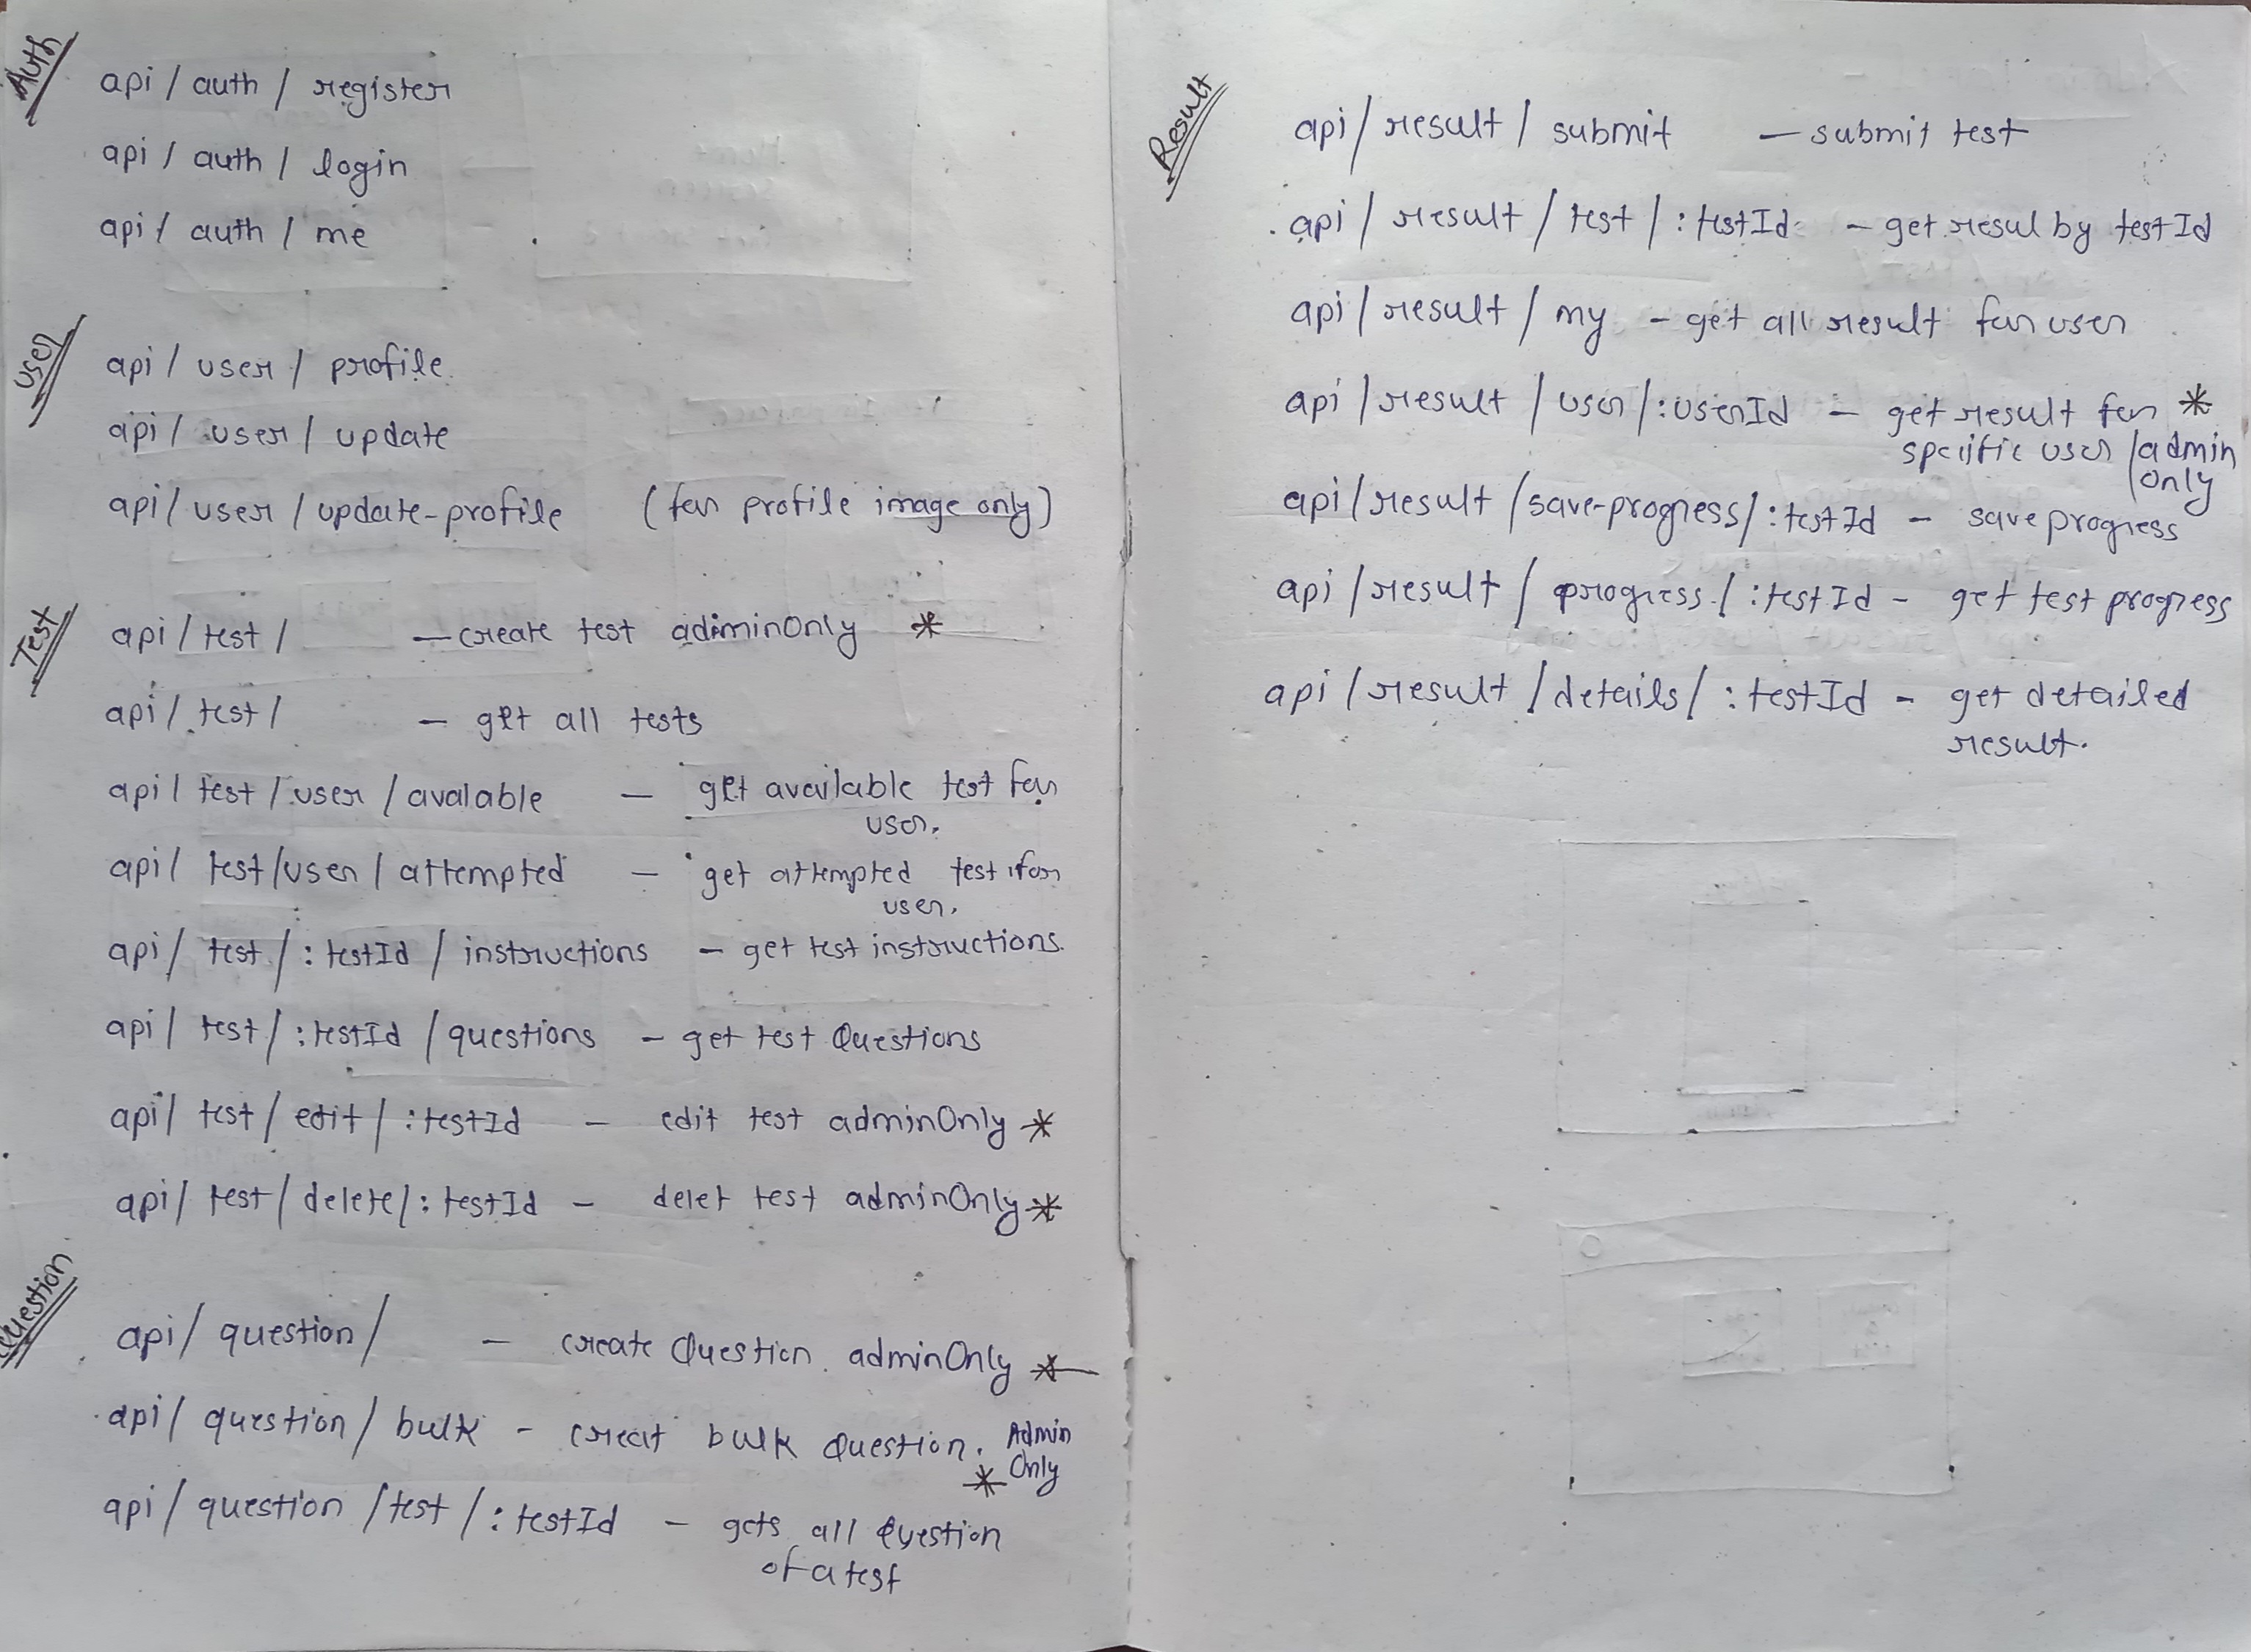 Auth
api / auth / register
api / auth / login
api / auth / me
User
api / user / profile
api / user / update
api / user / update-profile (for profile image only)
Test
api / test / — create test adiminOnly *
api / test / — get all tests
api / test / user / avalable — get available test for
user.
api / test / user / attempted — get attempted test for
user.
api / test / : testId / instructions — get test instructions.
api / test / : testId / questions — get test Questions
api / test / edit / : testId — edit test adminOnly *
api / test / delete / : testId — delet test adminOnly *
Question
api / question / — create Question. adminOnly *
api / question / bulk - creat bulk Question. Admin
Only *
api / question / test / : testId — gets all Question
of a test
Result
api / result / submit — submit test
api / result / test / : testId — get resul by testId
api / result / my — get all result for user
api / result / user / : userId — get result for *
specific user / admin
only
api / result / save-progress / : testId — save progress
api / result / progress / : testId — get test progress
api / result / details / : testId — get detailed
result.